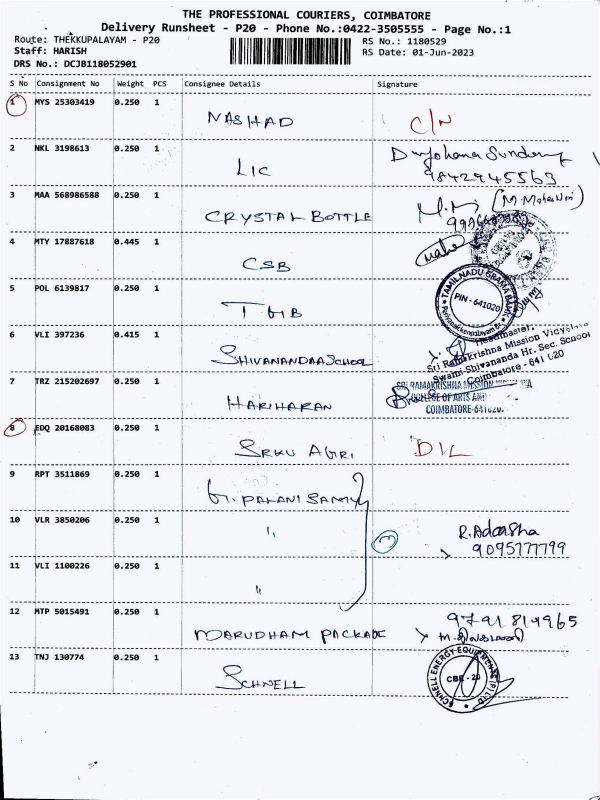 THE PROFESSIONAL COURIERS, COIMBATORE
Delivery Runsheet - P20 - Phone No.:0422-3505555 - Page No.:1
Route: THEKKUPALAYAM - P20
RS No.: 1180529
Staff: HARISH
RS Date: 01-Jun-2023
DRS No.: DCJB118052901
S No Consignment No Weight PCS Consignee Details Signature
1 MYS 25303419 0.250 1 NASHAD C/N
2 NKL 3198613 0.250 1 LIC
9842945563
3 MAA 568986588 0.250 1 CRYSTAL BOTTLE
4 MTY 17887618 0.445 1 CSB
5 POL 6139817 0.250 1 TGB
TAMILNADU GRAMA BANK
PIN - 641020
6 VLI 397236 0.415 1 SHIVANANDAA SCHOOL
Headmaster,
Sri Ramakrishna Mission Vidyalaya
Swami Shivananda Hr. Sec. School
Coimbatore - 641 020
7 TRZ 215202697 0.250 1 HARIHARAN
SRI RAMAKRISHNA MISSION
COLLEGE OF ARTS AND
COIMBATORE-641020.
8 EDQ 20168083 0.250 1 SRKU AGRI D/L
9 RPT 3511869 0.250 1 G. PALANISAMY
10 VLR 3850206 0.250 1 " 3 R. Adarsha
9095777799
11 VLI 1100226 0.250 1 "
12 MTP 5015491 0.250 1 MARUDHAM PACKAGE 9791814965
13 TNJ 130774 0.250 1 SCHNELL
SCHNELL ENERGY EQUIPMENTS (P) LTD
CBE - 20